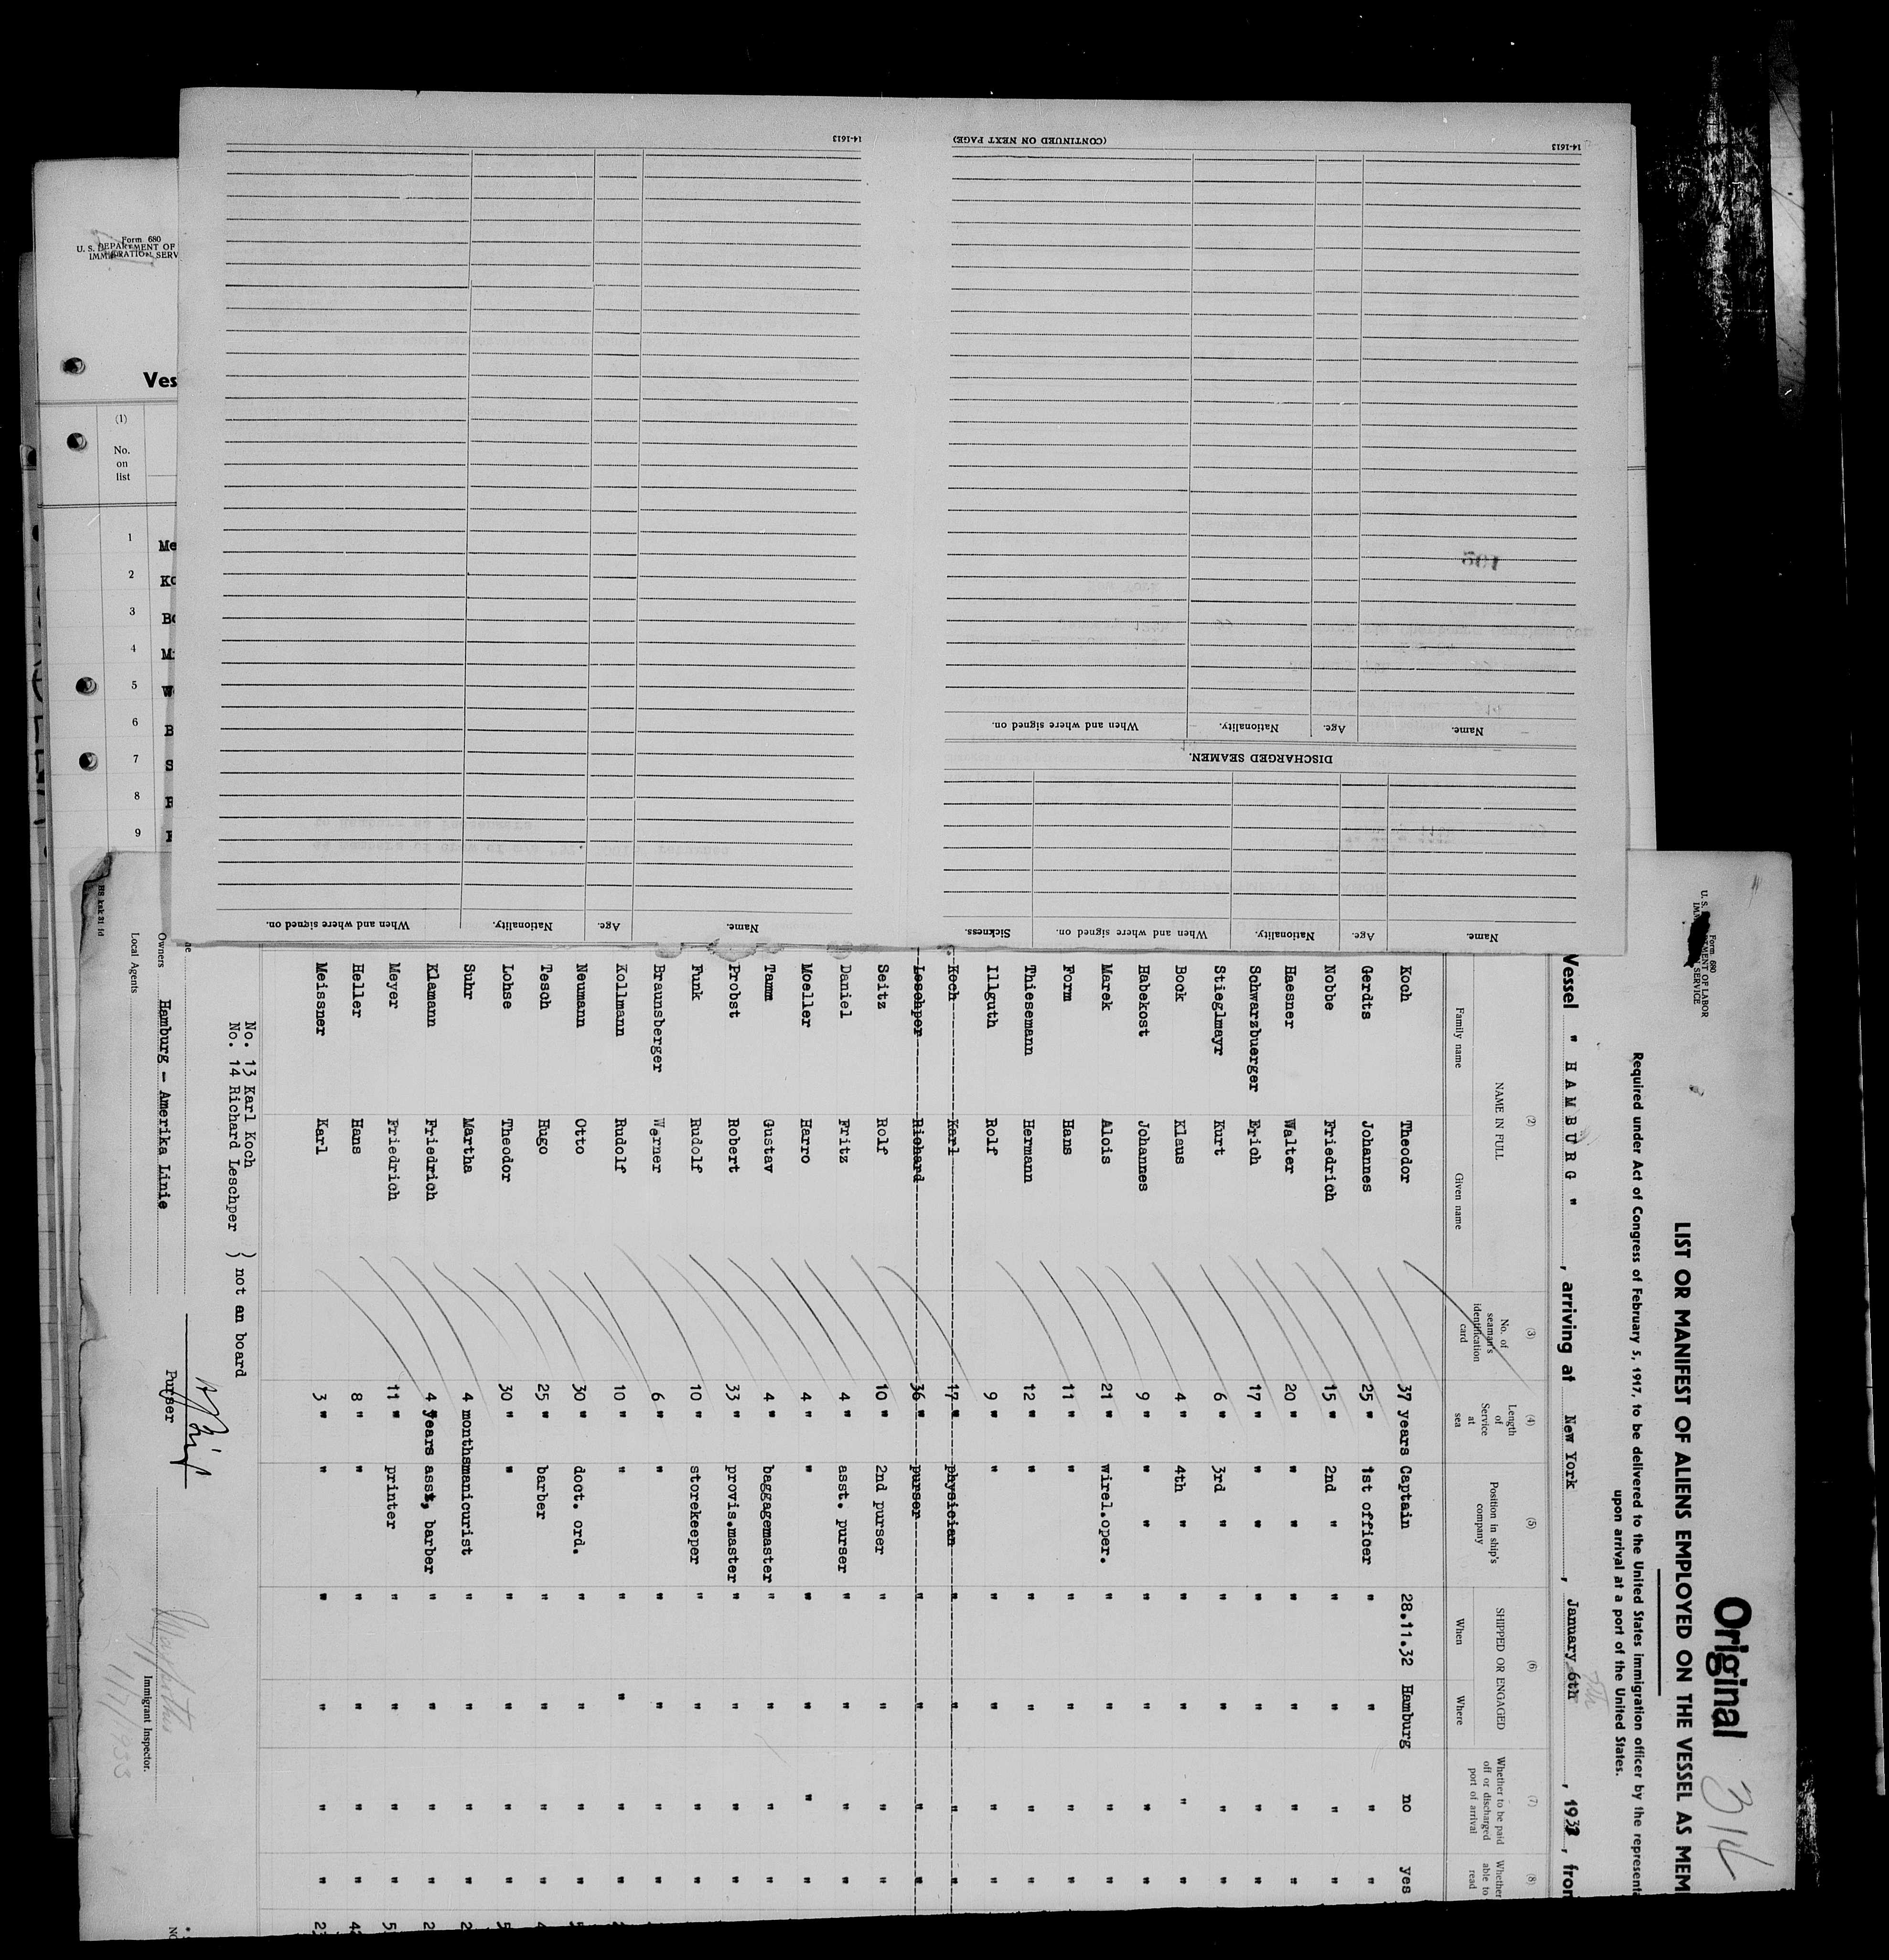 14-1613
(CONTINUED ON NEXT PAGE)
14-1613
Name.
Age.
Nationality.
When and where signed on.
DISCHARGED SEAMEN.
Name.
Age.
Nationality.
When and where signed on.
Sickness.
Name.
Age.
Nationality.
When and where signed on.
Form 680
U. S. DEPARTMENT OF
IMMIGRATION SERV
Ves
(1)
No.
on
list
1 Me
2 Ko
3 Bo
4 Mi
5 We
6 B
7 S
8
9
Form 680
U. S. MENT OF LABOR
SERVICE
Original
314
LIST OR MANIFEST OF ALIENS EMPLOYED ON THE VESSEL AS MEM
Required under Act of Congress of February 5, 1917, to be delivered to the United States immigration officer by the representa
upon arrival at a port of the United States.
Vessel " H A M B U R G " , arriving at New York , January 6th , 1933 , from
7th
(2) (3) (4) (5) (6) (7) (8)
NAME IN FULL
Family name Given name
No. of seaman's identification card
Length of Service at sea
Position in ship's company
SHIPPED OR ENGAGED
When Where
Whether to be paid off or discharged port of arrival
Whether able to read
Koch Theodor 37 years Captain 28.11.32 Hamburg no yes
Gerdts Johannes 25 " 1st officer " " " "
Nobbe Friedrich 15 " 2nd " " " " "
Haesner Walter 20 " " " " " " "
Schwarzbuerger Erich 17 " " " " " " "
Stieglmayr Kurt 6 " 3rd " " " " "
Bock Klaus 4 " 4th " " " " "
Habekost Johannes 9 " " " " " " "
Marek Alois 21 " wirel.oper. " " " "
Form Hans 11 " " " " " "
Thiesemann Hermann 12 " " " " " "
Illguth Rolf 9 " " " " " "
Koch Karl 17 " physician " " " "
Leschper Richard 36 " purser " " " "
Seitz Rolf 10 " 2nd purser " " " "
Daniel Fritz 4 " asst. purser " " " "
Moeller Harro 4 " " " " " "
Tamm Gustav 4 " baggagemaster " " " "
Probst Robert 33 " provis.master " " " "
Funk Rudolf 10 " storekeeper " " " "
Braunsberger Werner 6 " " " " " "
Kollmann Rudolf 10 " " " " " "
Neumann Otto 30 " doct. ord. " " " "
Tesch Hugo 25 " barber " " " "
Lohse Theodor 30 " " " " " "
Suhr Martha 4 months manicurist " " " "
Klamann Friedrich 4 years asst, barber " " " "
Meyer Friedrich 11 " printer " " " "
Heller Hans 8 " " " " " "
Meissner Karl 3 " " " " " "
No. 13 Karl Koch
No. 14 Richard Leschper } not an board
Purser
Owners Hamburg - Amerika Linie
Local Agents
Immigrant Inspector.
1/7/1933